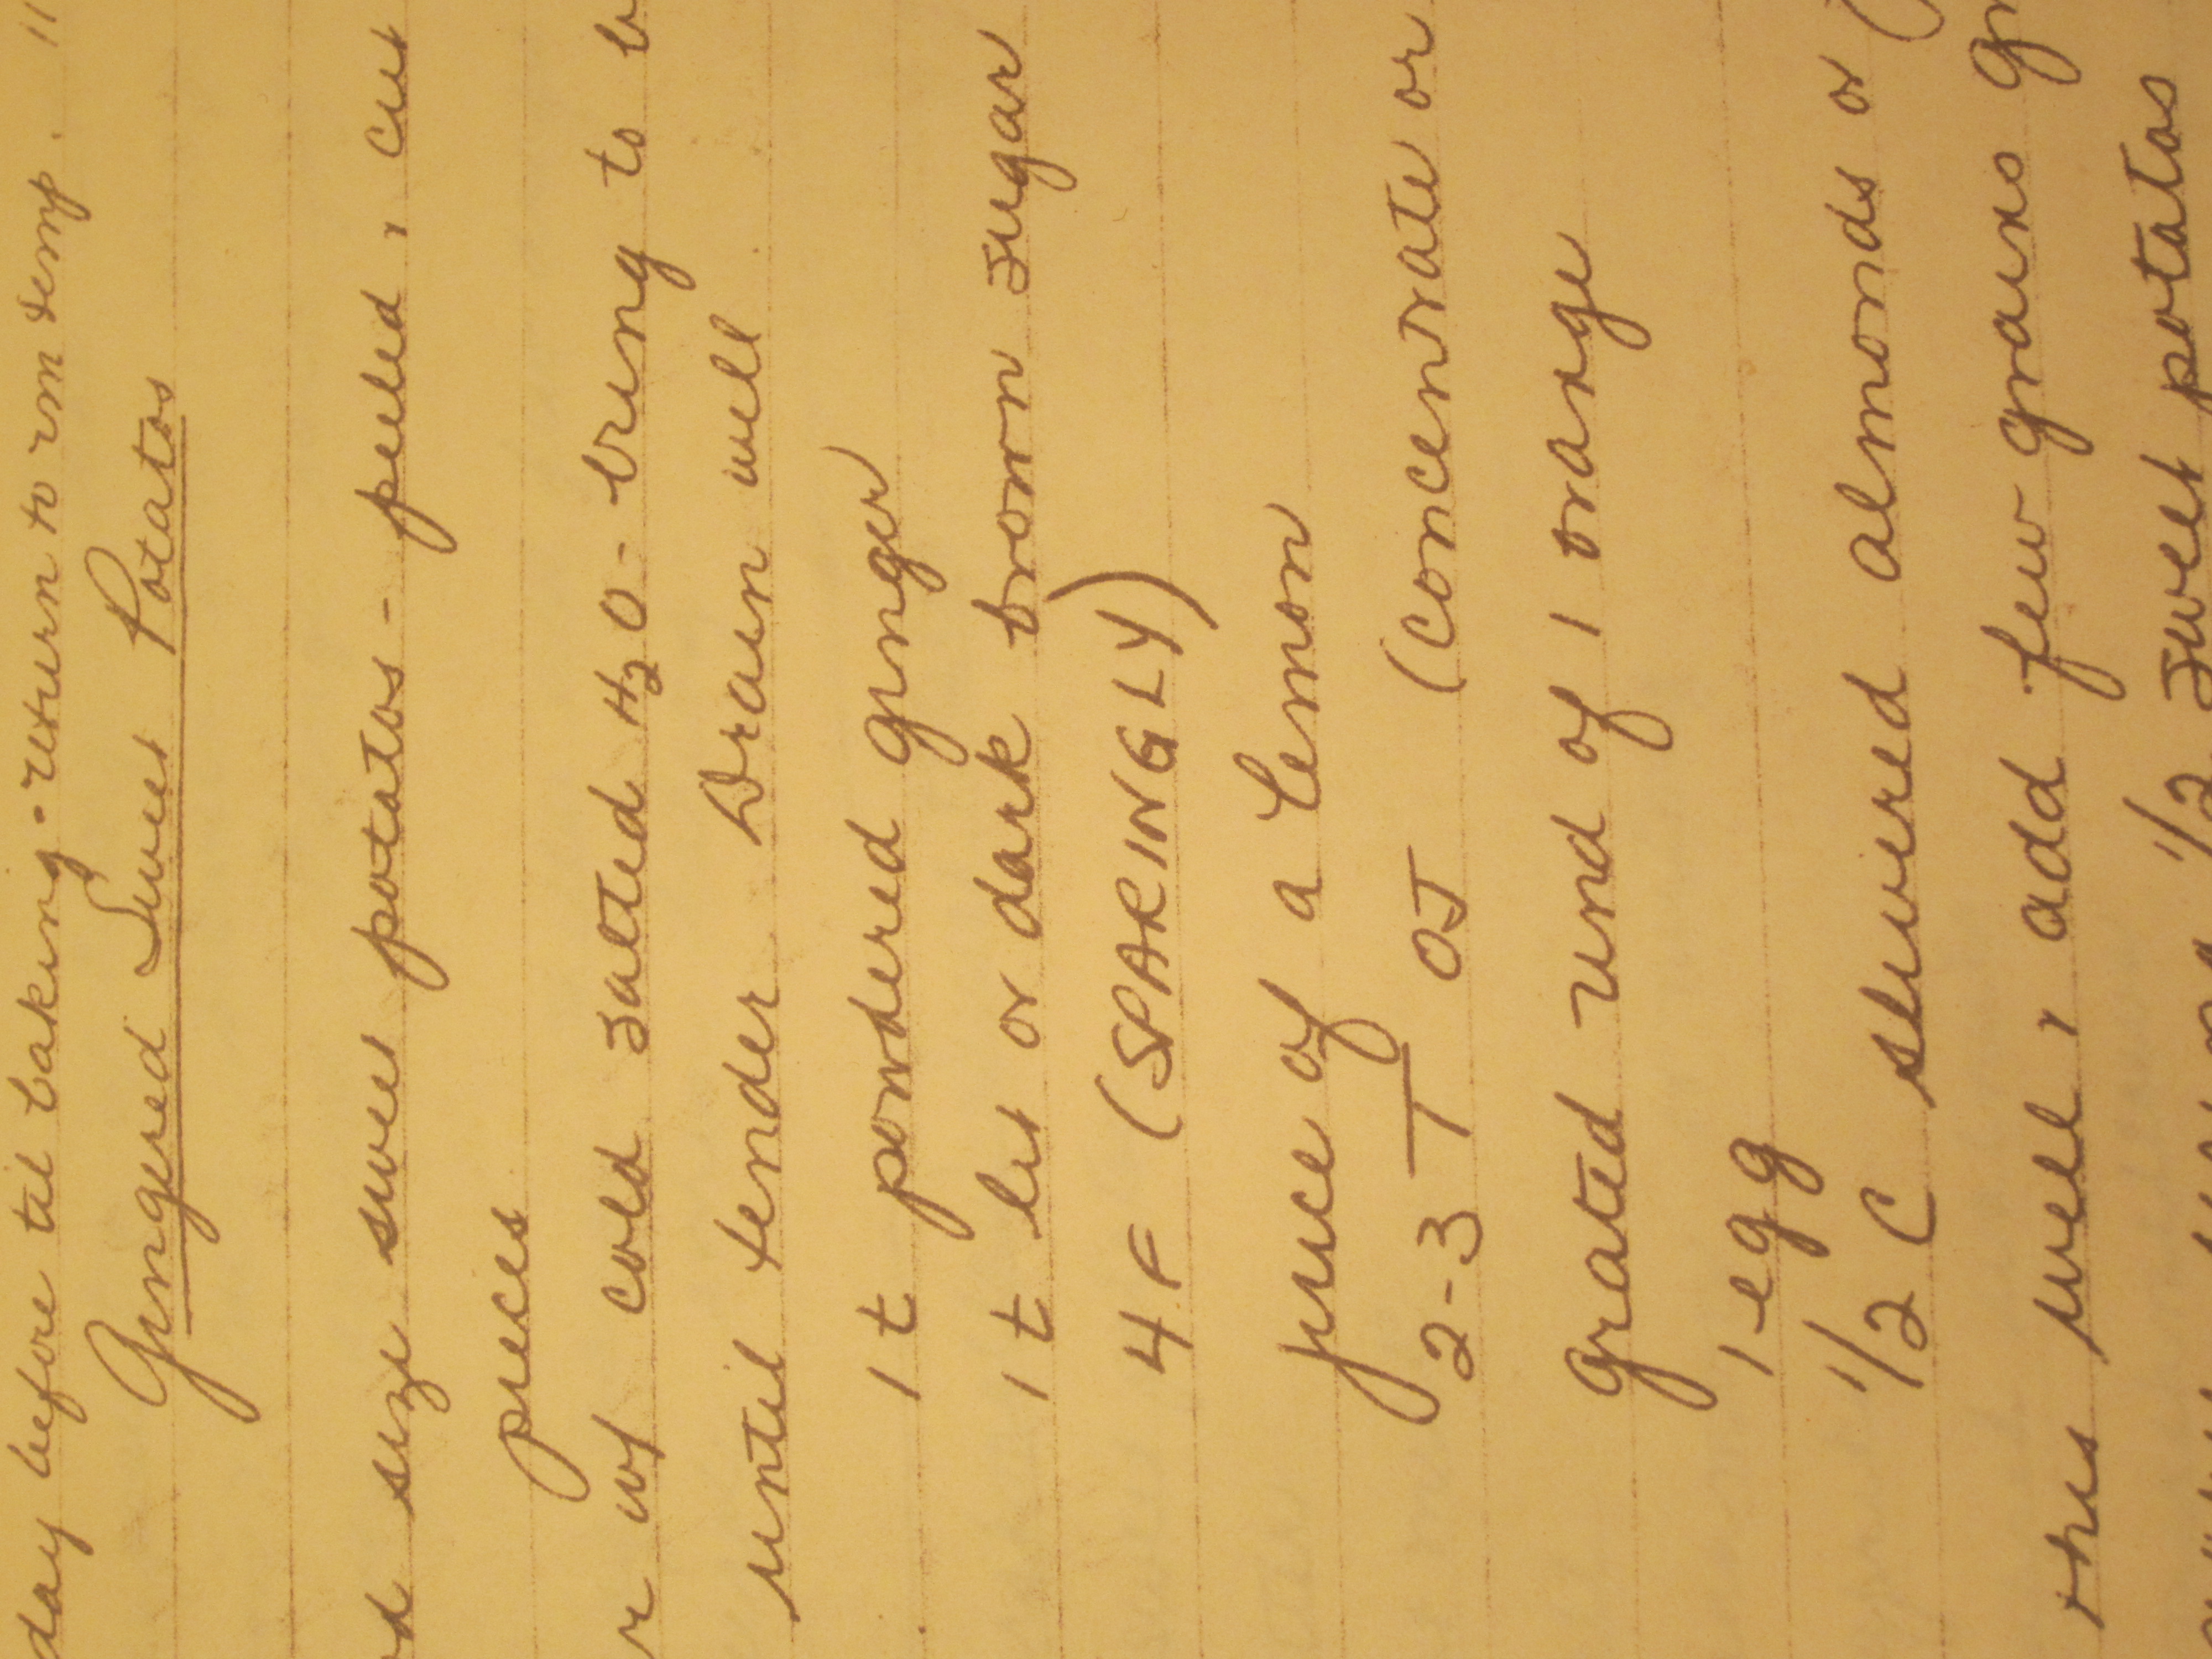 day before til baking - return to rm temp.
Gingered Sweet Potatos
size sweet potatos - peeled, cut
pieces
r w/ cold salted H2O - bring to b
until tender. Drain well.
1 t powdered ginger
1 t lit or dark brown sugar
4 F (SPARINGLY)
juice of a lemon
2-3 T OJ (concentrate or
grated rind of 1 orange
1 egg
1/2 C slivered almonds or (
this well, add few grains gr
1/2 sweet potatos